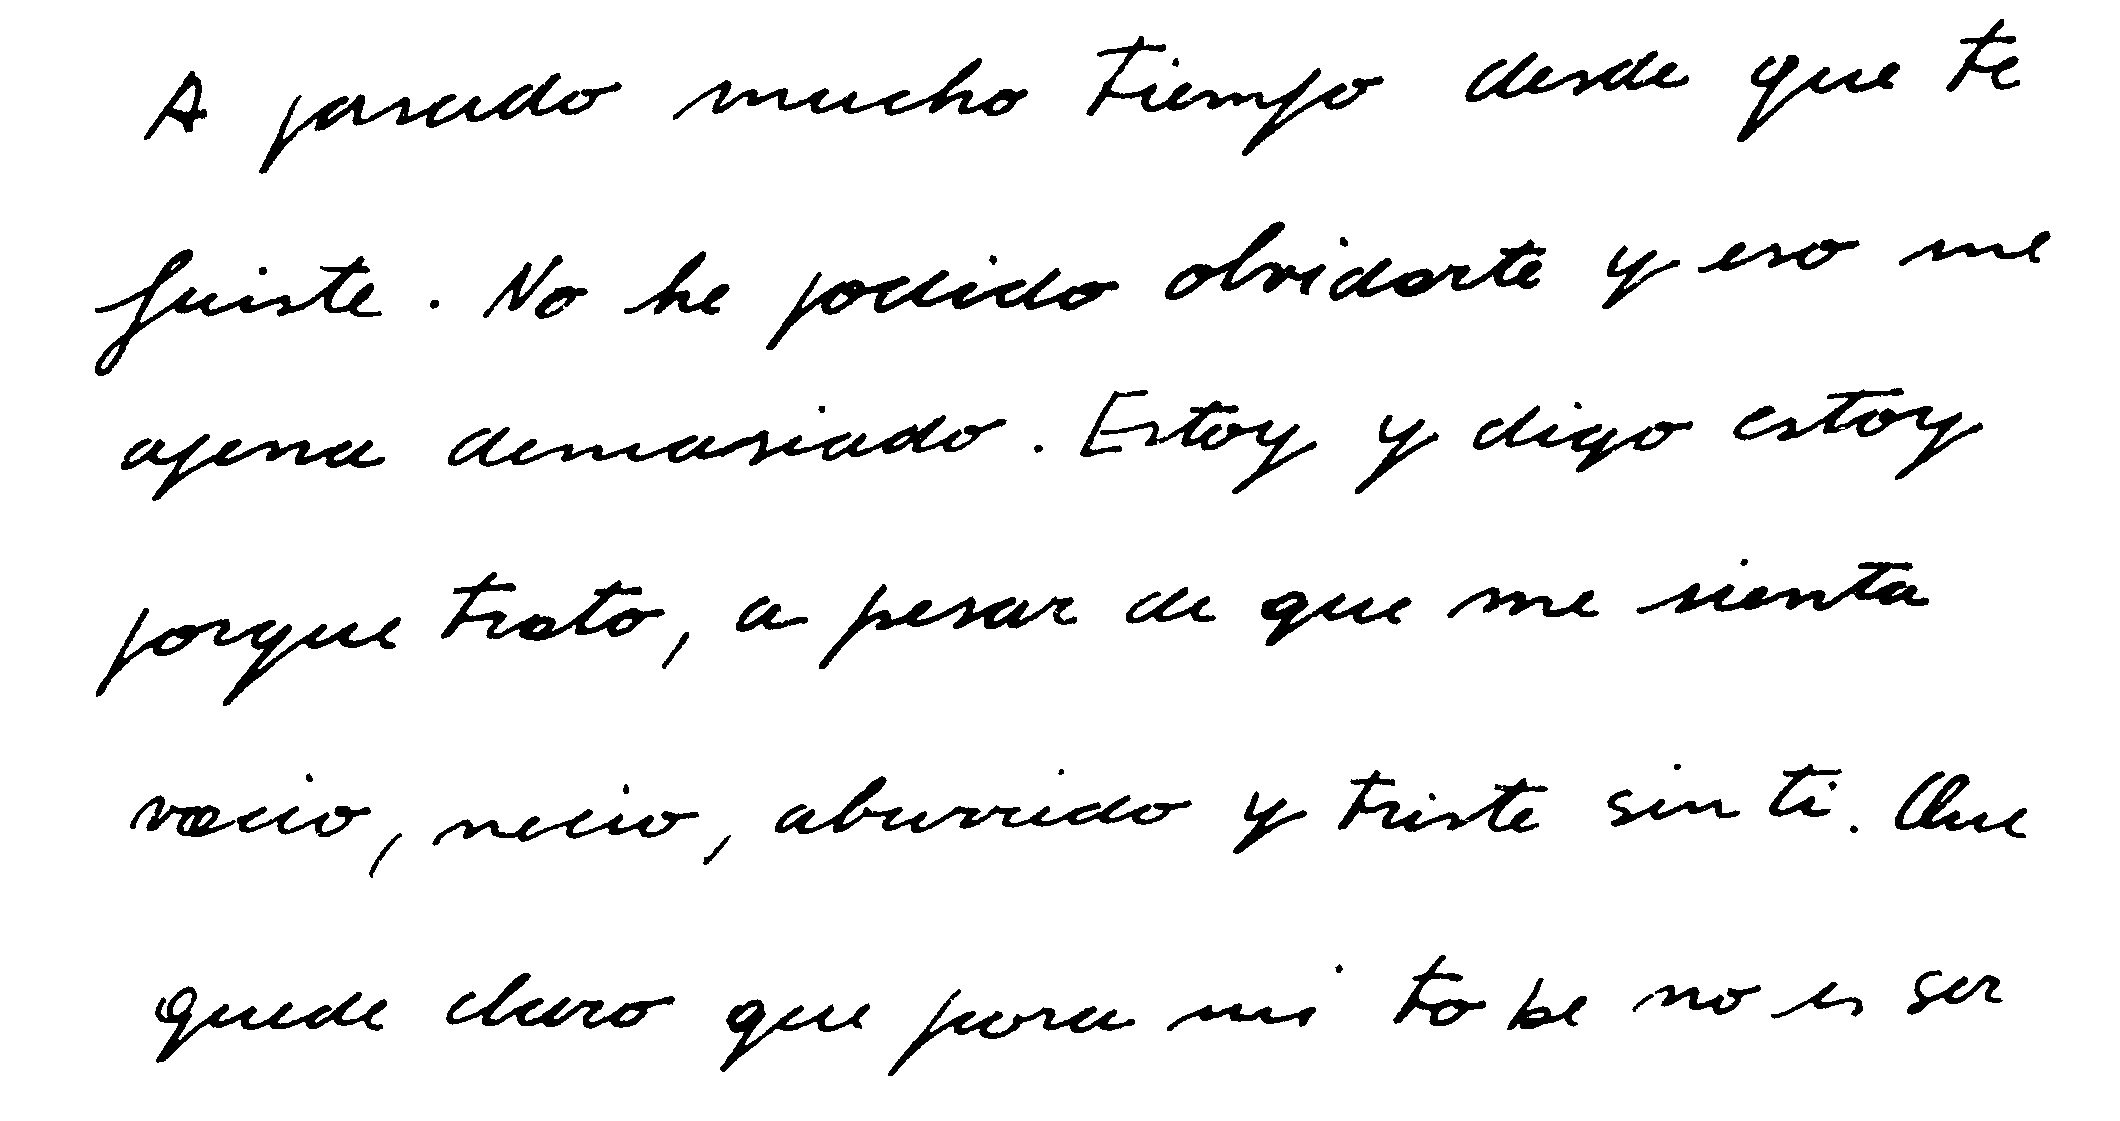 A pasado mucho tiempo desde que te
fuiste. No he podido olvidarte y eso me
apena demasiado. Estoy y digo estoy
porque trato, a pesar de que me sienta
vacio, necio, aburrido y triste sin ti. Que
quede claro que para mi to be no es ser